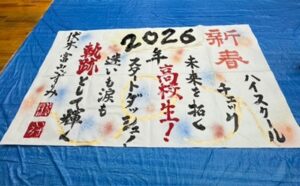 新春
ハイスクール
チェック
未来を拓く
2026
年高校生！
スタートダッシュ！
迷いも涙も
軌跡として輝く